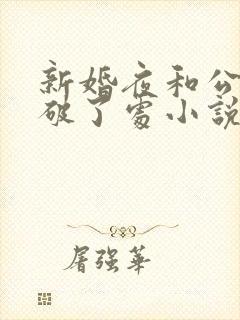 新婚夜和公
破了處小説
屠强華